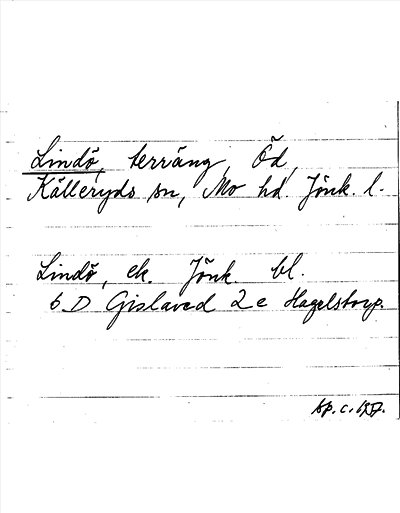 Lindö, terräng, Öd,
Källeryds sn, Mo hd. Jönk. l.
Lindö, ek. Jönk. bl.
6 D Gislaved 2 e Hagelstorp.